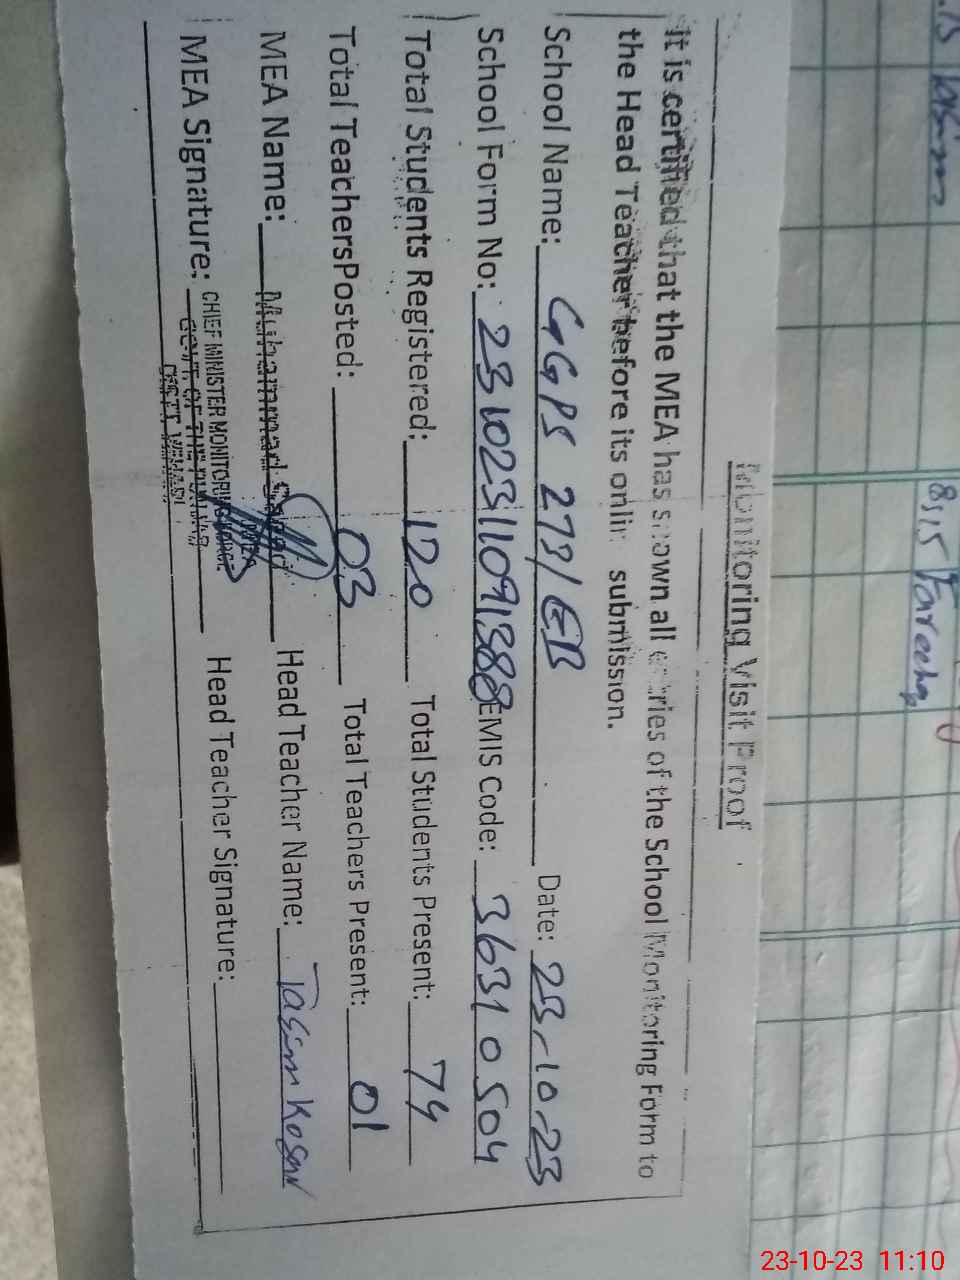 Monitoring Visit Proof
It is certified that the MEA has shown all entries of the School Monitoring Form to
the Head Teacher before its online submission.
School Name: GGPS 273/EB Date: 23-10-23
School Form No: 23102311091388 EMIS Code: 36310504
Total Students Registered: 120 Total Students Present: 74
Total TeachersPosted: 03 Total Teachers Present: 01
MEA Name: Muhammad Saeed Head Teacher Name:
MEA Signature: Head Teacher Signature:
CHIEF MINISTER MONITORING FORCE
GOVT. OF THE PUNJAB
DISTT. VEHARI
8:15
23-10-23 11:10